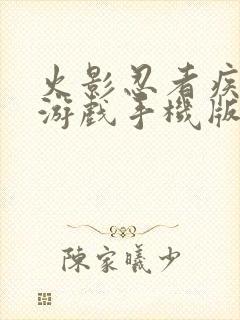 火影忍者疾
游戲手機版
陳家曦少